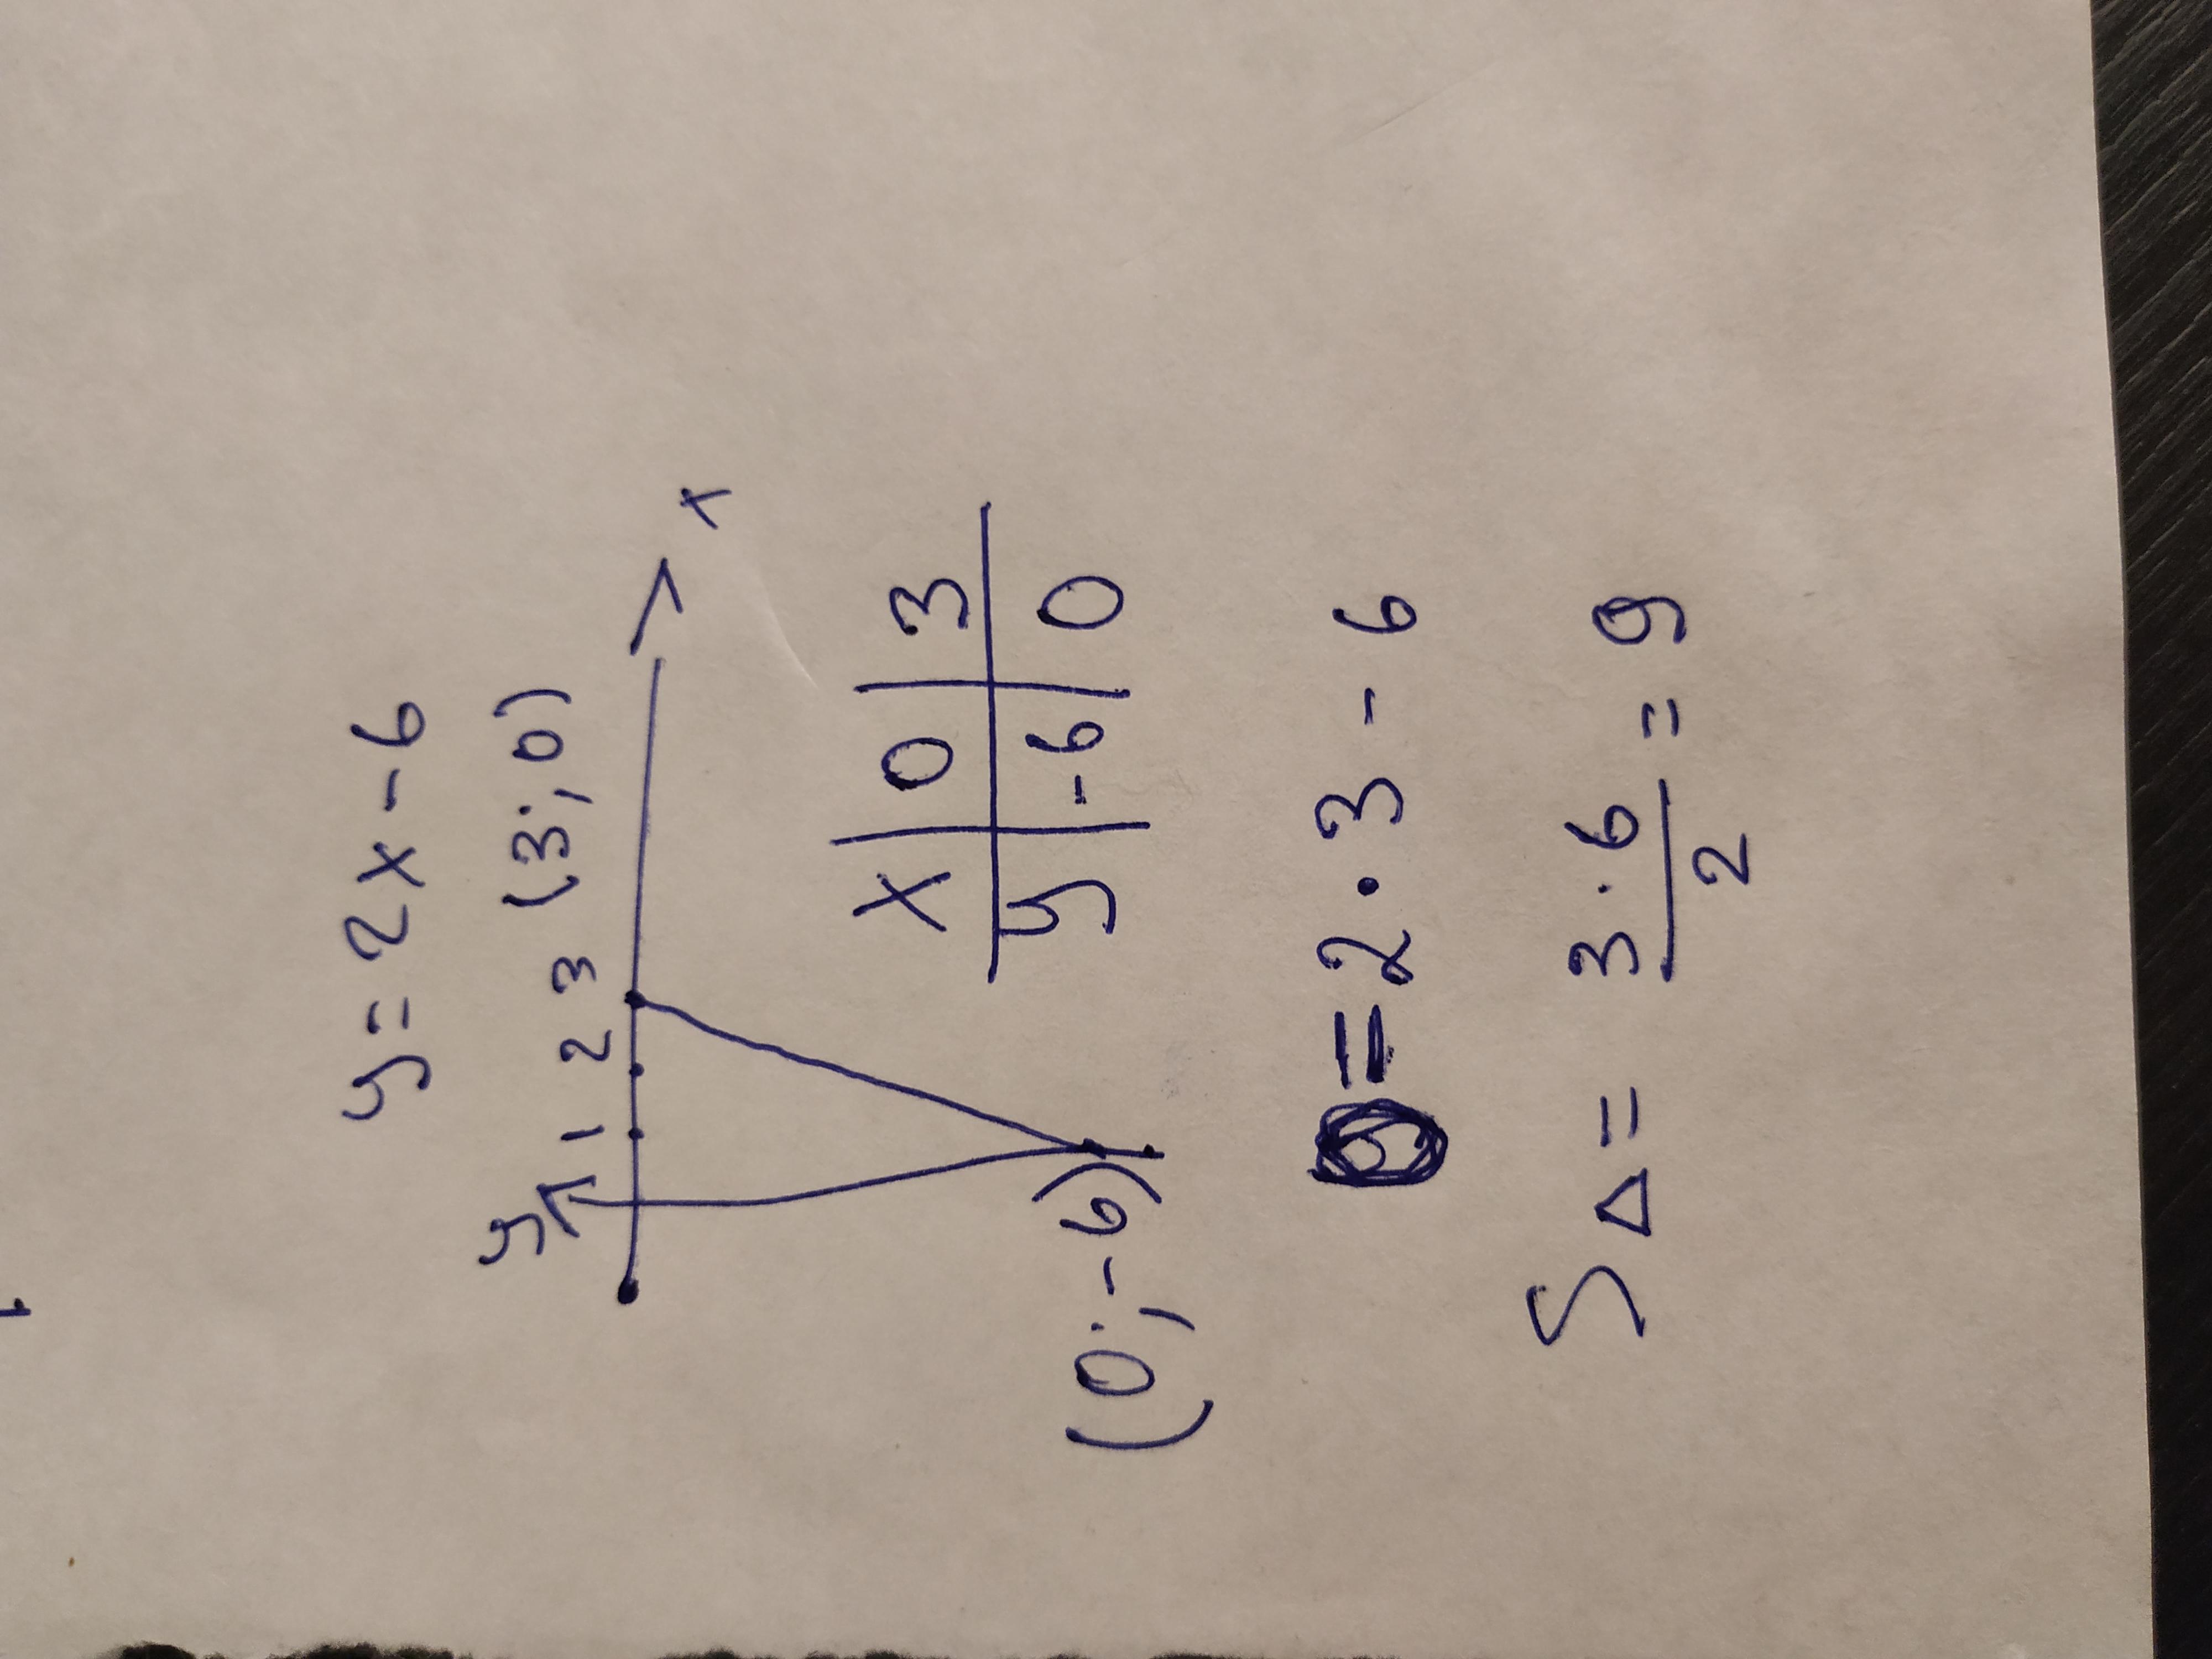 y = 2x - 6
(3; 0)
y 1 2 3
x
(0; -6)
x | 0 | 3
y | -6 | 0
0 = 2 · 3 - 6
S△ = 3 · 6 / 2 = 9